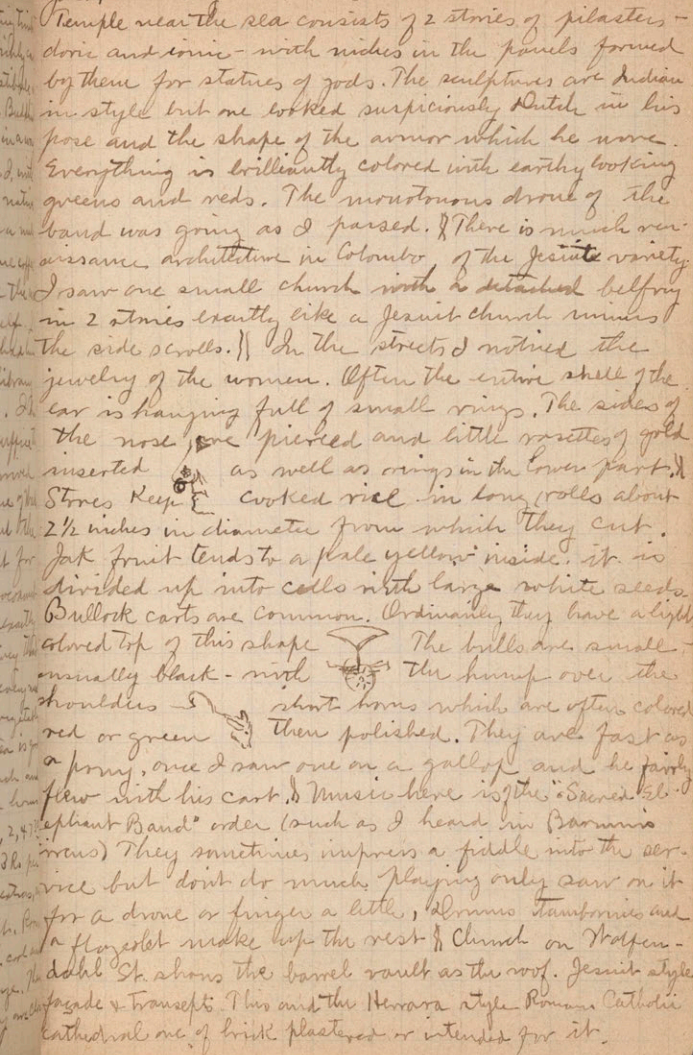 Temple near the sea consists of 2 stories of pilasters -
doric and ionic - with niches in the panels formed
by them for statues of gods. The sculptures are Indian
in style but one looked suspiciously Dutch in his
pose and the shape of the armor which he wore.
Everything is brilliantly colored with earthy looking
greens and reds. The monotonous drone of the
band was going as I passed. There is much ren-
aissance architecture in Colombo, of the Jesuit variety.
I saw one small church with a detached belfry
in 2 stories exactly like a Jesuit church minus
the side scrolls. In the streets I noticed the
jewelry of the women. Often the entire shell of the
ear is hanging full of small rings. The sides of
the nose are pierced and little rosettes of gold
inserted as well as rings in the lower part.
Stores keep cooked rice in long rolls about
2½ inches in diameter from which they cut.
Jak fruit tends to a pale yellow inside. it is
divided up into cells with large white seeds.
Bullock carts are common. Ordinarily they have a light
colored top of this shape The bulls are small -
usually black - with the hump over the
shoulders - short horns which are often colored
red or green then polished. They are fast as
a pony, once I saw one on a gallop and he fairly
flew with his cart. Music here is of the "Sacred El-
ephant Band" order (such as I heard in Barnum's
circus) They sometimes impress a fiddle into the ser-
vice but dont do much playing only saw on it
for a drone or finger a little, Drums tamborines and
a flageolet make up the rest Church on Wolfen-
dahl St. shows the barrel vault as the roof. Jesuit style
façade & transepts. This and the Herrara style Roman Catholic
cathedral are of brick plastered or intended for it.